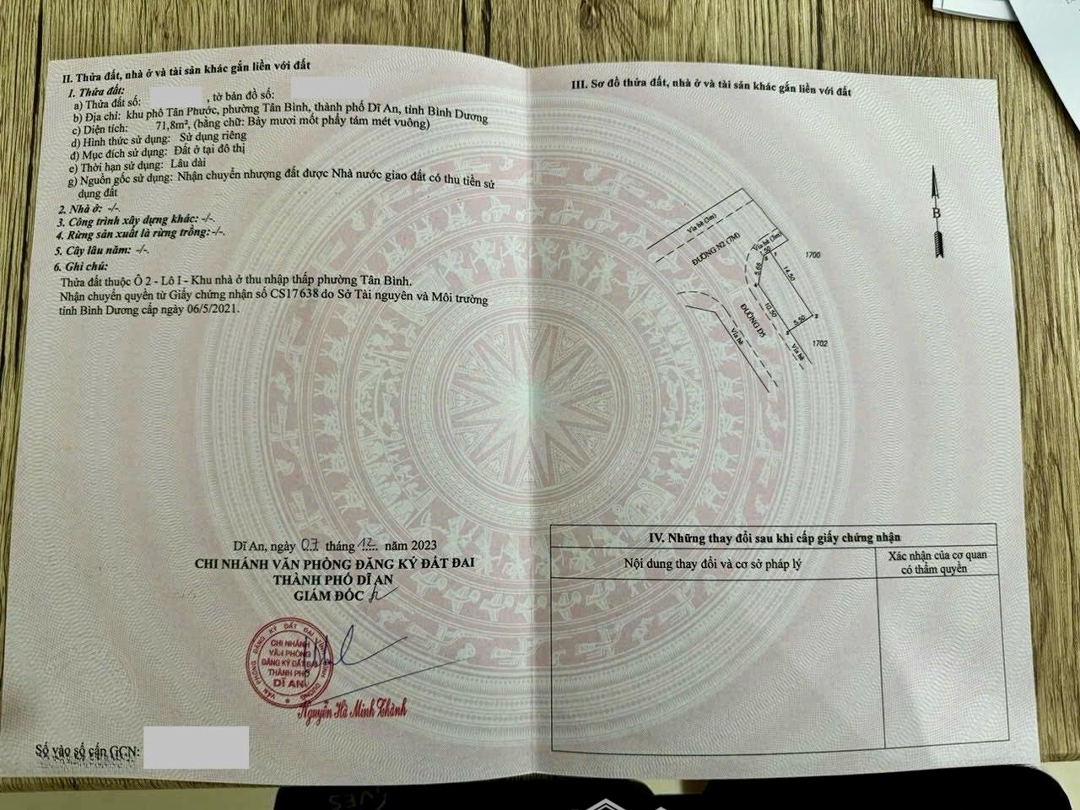 II. Thửa đất, nhà ở và tài sản khác gắn liền với đất
1. Thửa đất:
a) Thửa đất số: , tờ bản đồ số:
b) Địa chỉ: khu phố Tân Phước, phường Tân Bình, thành phố Dĩ An, tỉnh Bình Dương
c) Diện tích: 71,8m², (bằng chữ: Bảy mươi mốt phẩy tám mét vuông)
d) Hình thức sử dụng: Sử dụng riêng
đ) Mục đích sử dụng: Đất ở tại đô thị
e) Thời hạn sử dụng: Lâu dài
g) Nguồn gốc sử dụng: Nhận chuyển nhượng đất được Nhà nước giao đất có thu tiền sử
dụng đất
2. Nhà ở: -/-.
3. Công trình xây dựng khác: -/-.
4. Rừng sản xuất là rừng trồng: -/-.
5. Cây lâu năm: -/-.
6. Ghi chú:
Thửa đất thuộc Ô 2 - Lô I - Khu nhà ở thu nhập thấp phường Tân Bình.
Nhận chuyển quyền từ Giấy chứng nhận số CS17638 do Sở Tài nguyên và Môi trường
tỉnh Bình Dương cấp ngày 06/5/2021.
Dĩ An, ngày 07 tháng 12 năm 2023
CHI NHÁNH VĂN PHÒNG ĐĂNG KÝ ĐẤT ĐAI
THÀNH PHỐ DĨ AN
GIÁM ĐỐC
CHI NHÁNH
VĂN PHÒNG
ĐĂNG KÝ ĐẤT ĐAI
THÀNH PHỐ
DĨ AN
Nguyễn Hà Minh Thành
Số vào sổ cấp GCN:
III. Sơ đồ thửa đất, nhà ở và tài sản khác gắn liền với đất
B
Vỉa hè (3m)
ĐƯỜNG N2 (7M)
Vỉa hè (3m)
1700
5.66
14.50
10.50
5.50
ĐƯỜNG D5
Vỉa hè
Vỉa hè
1702
IV. Những thay đổi sau khi cấp giấy chứng nhận
Nội dung thay đổi và cơ sở pháp lý
Xác nhận của cơ quan
có thẩm quyền